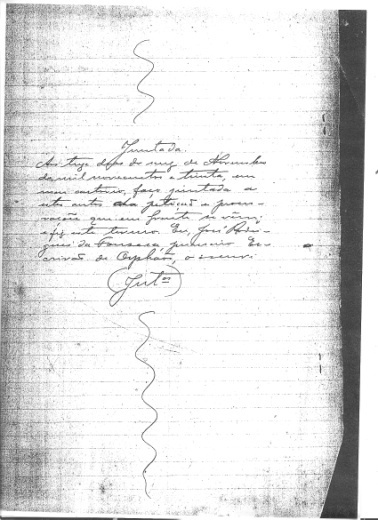 Juntada.
Aos treze dias do mez de Novembro
de mil novecentos e trinta, em
meu cartorio, faço juntada a
estes autos da petição e procu-
ração que em frente se vêem;
e fiz este termo. Eu, José Rodri-
gues da Fonseca, primeiro Es-
crivão de Orphãos, o escrevi